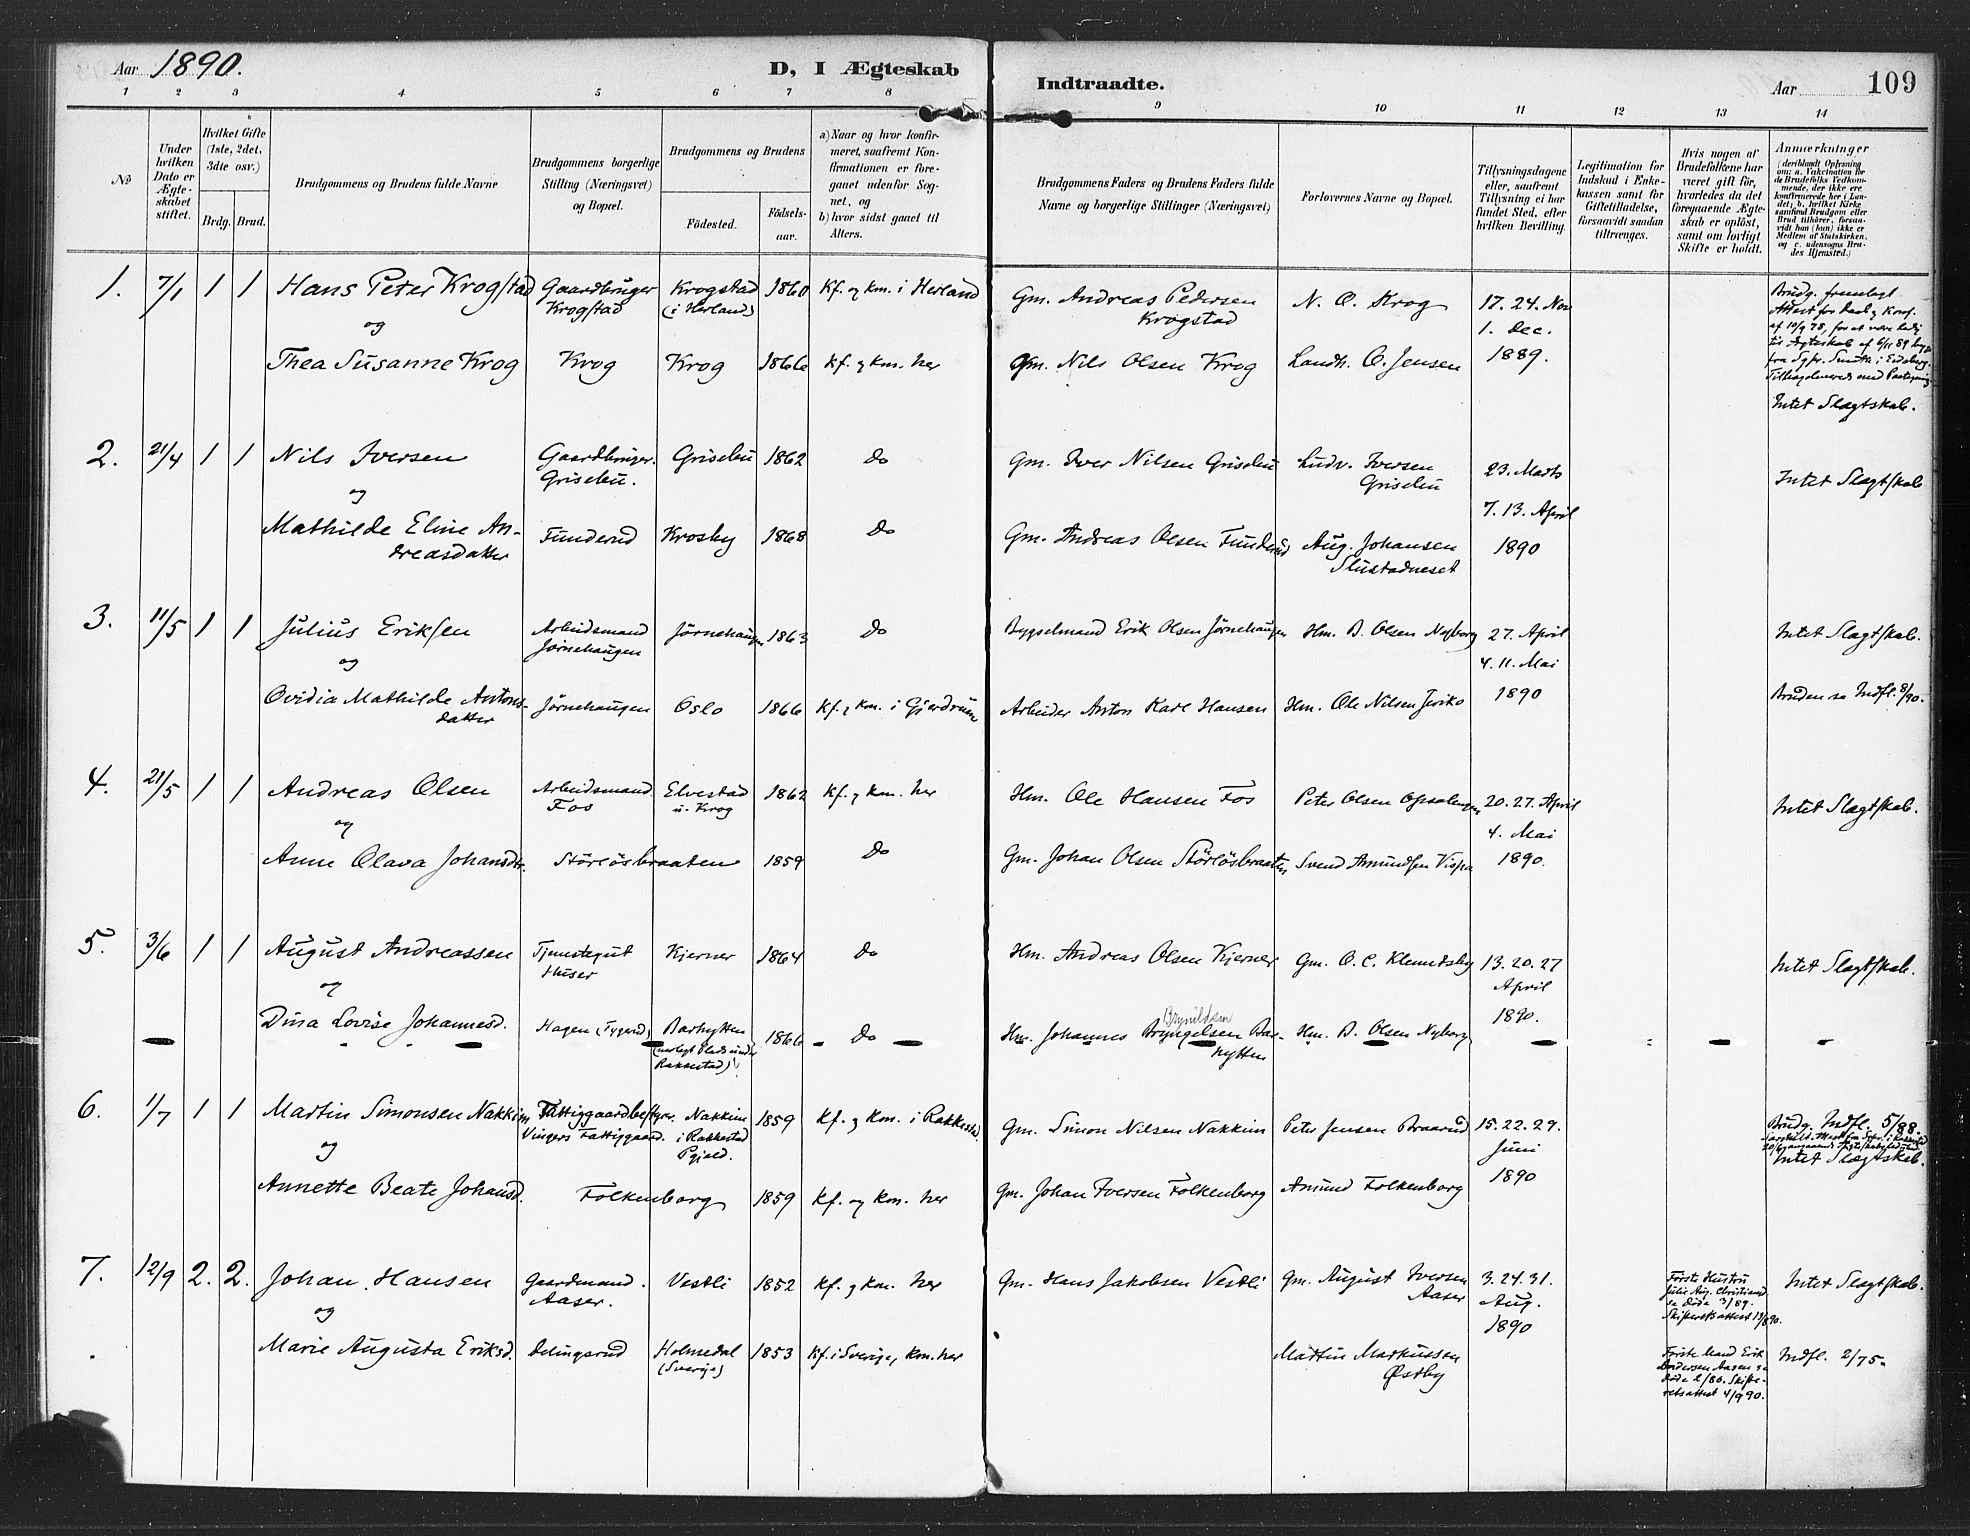 Aar 1890.
D, I Ægteskab
Indtraadte.
Aar
109
1 2 3 4 5 6 7 8 9 10 11 12 13 14
№
Under hvilken Dato er Ægteskabet stiftet.
Hvilket Gifte (1ste, 2det, 3die osv.)
Brdg. Brud.
Brudgommens og Brudens fulde Navne
Brudgommens borgerlige Stilling (Næringsvei) og Bopæl.
Brudgommens og Brudens
Fødested.
Fødselsaar.
a) Naar og hvor konfirmeret, saafremt Konfirmationen er foregaaet udenfor Sognet, og
b) hvor sidst gaaet til Alters.
Brudgommens Faders og Brudens Faders fulde Navne og borgerlige Stillinger (Næringsvei)
Forlovernes Navne og Bopæl.
Tillysningsdagene eller, saafremt Tillysning ei har fundet Sted, efter hvilken Bevilling.
Legitimation for Indskud i Enkekassen samt for Giftetilladelse, forsaavidt saadan tiltrænges.
Hvis nogen af Brudefolkene har været gift før, hvorledes da det foregaaende Ægteskab er opløst, samt om lovligt Skifte er holdt.
Anmærkninger
(deriblandt Oplysning om: a. Vakcination for de Brudefolks Vedkommende, der ikke ere konfirmerede her i Landet; b. hvilket Kirkesamfund Brudgom eller Brud tilhører, forsaavidt han (hun) ikke er Medlem af Statskirken, og c. udensogns Brudes Hjemsted.)
1. 7/1 1 1 Hans Peter Krogstad Gaardbruger Krogstad Krogstad (i Herland) 1860 Kf. og km. i Herland Gm. Andreas Pedersen Krogstad N. O. Krog 17. 24. Nov 1. Dec. 1889.
Brudg. fremlagt
Intet Slagtskab.
og
Thea Susanne Krog Krog Krog 1866 Kf. & km. her Gm. Nils Olsen Krog Landh. O. Jensen
2. 21/4 1 1 Nils Iversen Gaardbruger. Grisebu. Grisebu 1862 Do Gm. Iver Nilsen Grisebu Ludv. Iversen Grisebu 23. Marts 7. 13. April 1890 Intet Slagtskab
og
Mathilde Eline Andreasdatter Funderud Krosby 1868 Do Gm. Andreas Olsen Funderud Aug. Johansen Slustadneset
3. 11/5 1 1 Julius Eriksen Arbeidsmand Jørnehaugen Jørnehaugen 1863 Do Bygselmand Erik Olsen Jørnehaugen Hm. B. Olsen Nyborg 27. April 4. 11. Mai 1890 Intet Slagtskab.
og
Ovidia Mathilde Antonsdatter Jørnehaugen Oslo 1866 Kf. & km. i Gjerdrum Arbeider Anton Karl Hansen Hm. Ole Nilsen Jeriko Bruden sa Indfl. 8/90.
4. 21/5 1 1 Andreas Olsen Arbeidsmand Fos Elvestad u. Krog 1862 Kf. & km. her Hm. Ole Hansen Fos Peter Olsen Opsahaugen 20. 27. April 4. Mai 1890. Intet Slagtskab.
og
Anne Olava Johansdtr. Störlösbraaten 1859 Do Gm. Johan Olsen Störlösbraaten Svend Amundsen Vispa
5. 3/6 1 1 August Andreassen Tjenestegut Huser Kjerner 1864 Do Hm. Andreas Olsen Kjerner Gm. O. C. Klemdsby 13. 20. 27 April 1890. Intet Slagtskab.
og
Dina Lovise Johannesd. Hagen Barhytten (nedlagt Plads under Rakkestad) 1866 Do Hm. Johannes Bryngelsen Barhytten Brynildsen Hm. B. Olsen Nyborg
6. 1/7 1 1 Martin Simonsen Nakkim Fattiggaardbestyrer. Vingers Fattiggaard. Nakkim i Rakkestad Pgjeld. 1859 Kf. & km. i Rakkestad Gm. Simon Nilsen Nakkim Peter Jensen Braarud 15. 22. 29. Juni 1890 Brudg. Indfl. 5/88.
Intet Slagtskab.
og
Annette Beate Johansd. Folkenborg 1859 Kf. og km. her Gm. Johan Iversen Folkenborg Amund Folkenborg
7. 12/9 2. 2. Johan Hansen Gaardmand. Aaser. Vestli 1852 Kf. & km. her Gm. Hans Jakobsen Vestli Gm. August Iversen Aaser 3. 24. 31. Aug. 1890 Første Hustru Julie Aug. Christiansd. sa døde 3/89. Skifteretsattest 13/8 90. Intet Slagtskab.
og
Marie Augusta Eriksd. Delingsrud Holmedal (Sverige) 1853 Kf. i Sverige, km. her Mattin Markussen Østby Første Mand Erik Andersen Aasen sa døde 2/86. Skifteretsattest 4/9 90. Indfl. 2/75.